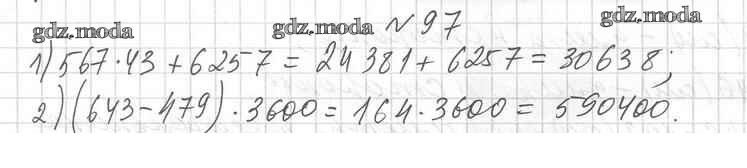 gdz.moda gdz.moda №97 gdz.moda
1) 567·43+6257=24381+6257=30638;
2) (643-479)·3600=164·3600=590400.